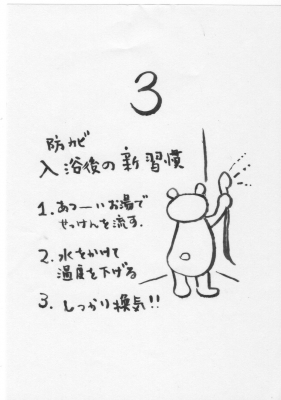 3
防カビ
入浴後の新習慣
1. あつーいお湯で
せっけんを流す.
2. 水をかけて
温度を下げる
3. しっかり換気!!